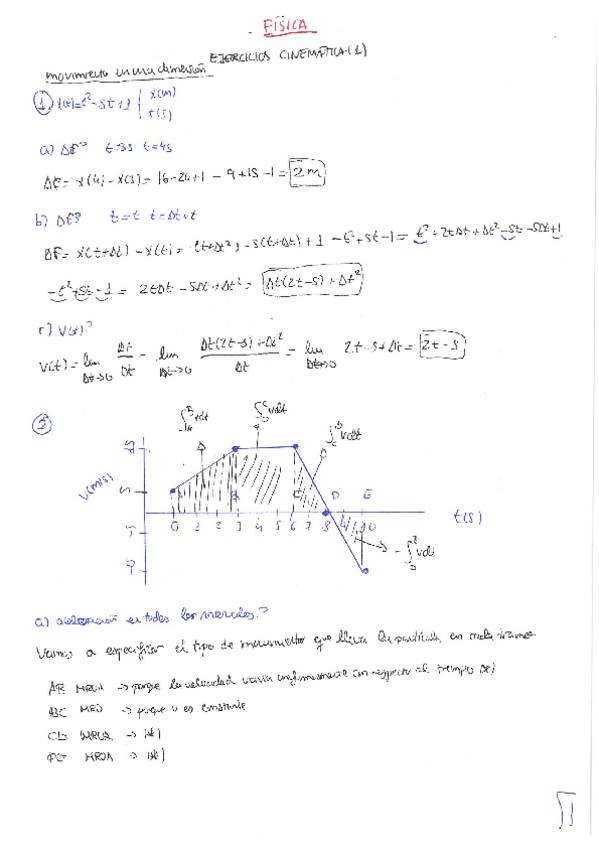 FÍSICA
EJERCICIOS CINEMÁTICA (1)
movimiento en una dimensión
① x(t)=t²-5t+1 | x(m)
t(s)
a) Δr? t=3s t=4s
Δr = x(4) - x(3) = 16-20+1 - 9+15-1 = 2m
b) Δr? t=t t=Δt+t
Δr = x(t+Δt) - x(t) = (t+Δt)² - 5(t+Δt)+1 - t²+5t-1 = t²+2tΔt+Δt²-5t-5Δt+1
-t²+5t-1 = 2tΔt-5Δt+Δt² = Δt(2t-5)+Δt²
c) V(t)?
V(t) = lim Δt→0 Δr/Δt = lim Δt→0 Δt(2t-5)+Δt²/Δt = lim Δt→0 2t-5+Δt = 2t-5
②
∫ vdt ∫ vdt ∫ vdt
V(m/s)
A B C D E
0 1 2 3 4 5 6 7 8 9 10 t(s)
-∫ vdt
a) aceleración en todos los intervalos?
Vamos a especificar el tipo de movimiento que lleva la partícula en cada tramo
AB MRUA → porque la velocidad varía uniformemente con respecto al tiempo
BC MRU → porque v es constante
CD MRUA →
DE MRUA →